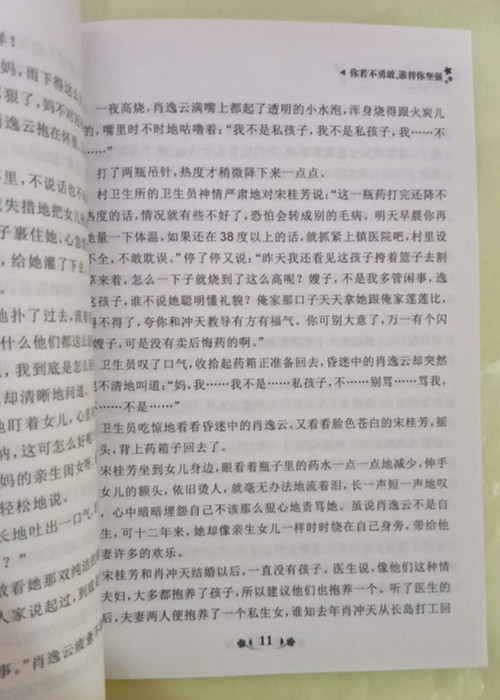 你若不勇敢,谁替你坚强
一夜高烧,肖逸云满嘴上都起了透明的小水泡,浑身烧得跟火炭儿
,嘴里时不时地咕噜着:“我不是私孩子,我不是私孩子,我……不
……”
打了两瓶吊针,热度才稍微降下来一点点。
村卫生所的卫生员神情严肃地对宋桂芳说:“这一瓶药打完还降不
热度的话,情况就有些不好了,恐怕会转成别的毛病。明天早晨你再
她量一下体温,如果还在38度以上的话,就抓紧上镇医院吧,村里设
不全,不敢耽误。”停了停又说:“昨天我还看见这孩子挎着篮子去割
草来着,怎么一下子就烧到了这么高呢?嫂子,不是我多管闲事,逸
孩子,谁不说她聪明懂礼貌?俺家那口子天天拿她跟俺家莲莲比,
得不得了,夸你和冲天教导有方有福气。你可别大意了,万一有个闪
嫂子,可是没有卖后悔药的啊。”
卫生员叹了口气,收拾起药箱正准备回去,昏迷中的肖逸云却突然
不清地叫道:“妈,我……我不是……私孩子,不……别骂……骂我,
……不是……”
卫生员吃惊地看看昏迷中的肖逸云,又看看脸色苍白的宋桂芳,摇
头,背上药箱子回去了。
宋桂芳坐到女儿身边,眼看着瓶子里的药水一点一点地减少,伸手
女儿的额头,依旧烫人,就毫无办法地流着泪,长一声短一声地叹
,心中暗暗埋怨自己不该那么狠心地责骂她。虽说肖逸云不是自
生,可十二年来,她却像亲生女儿一样时时绕在自己身旁,带给他
妻许多的欢乐。
宋桂芳和肖冲天结婚以后,一直没有孩子。医生说,像他们这种情
夫妇,大多都抱养了孩子,所以建议他们也抱养一个。听了医生的
后,夫妻两人便抱养了一个私生女,谁知去年肖冲天从长岛打工回
11
样!
妈,雨下得这么
狠了,妈不对
肖逸云抱在怀里
里,不说话也不
慌失措地把女儿
子裹住她,心急
,给她灌了下去
地扑了过去,
什么他们都这
,我到底是怎么
却清晰地问道
地盯着女儿,心里
呐,这可怎么好呢
妈的亲生闺女呀
轻松地说。
长地吐出一口气
?”
敢看她那双纯洁
人家说起过,到底
事。”肖逸云疲惫